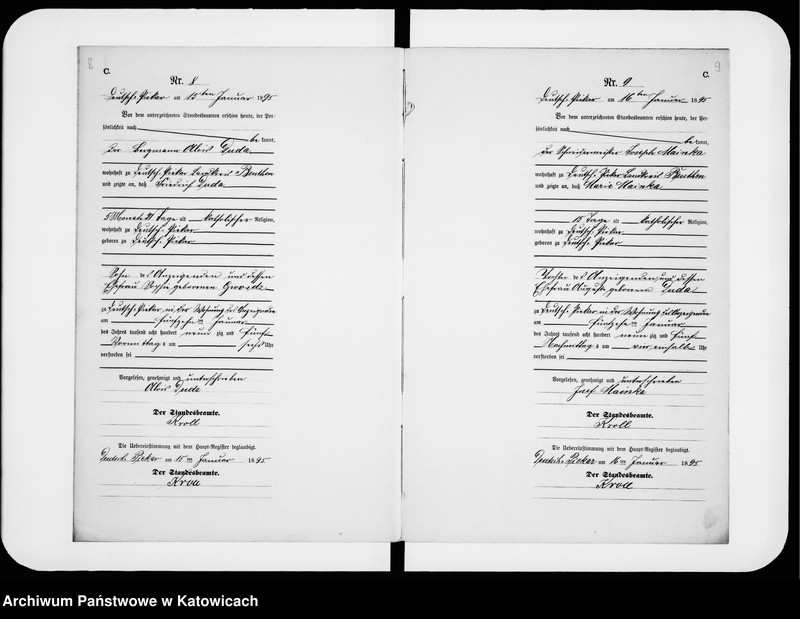 8
C.
Nr. 8
Deutsch-Piekar am 15ten Januar 1895
Vor dem unterzeichneten Standesbeamten erschien heute, der Per-
sönlichkeit nach
bekannt,
der Bergmann Alois Duda
wohnhaft zu Deutsch-Piekar Landkreis Beuthen
und zeigte an, daß Friedrich Duda
5 Monate 21 Tage alt katholischer Religion,
wohnhaft zu Deutsch-Piekar
geboren zu Deutsch-Piekar
Sohn des Anzeigenden und dessen
Ehefrau Sophie geborenen
zu Deutsch-Piekar, in der Wohnung des Anzeigenden
am fünfzehnten Januar
des Jahres tausend acht hundert neunzig und fünf
Vormittag s um sechs Uhr
verstorben sei
Vorgelesen, genehmigt und unterschrieben
Alois Duda
Der Standesbeamte.
Kroll
Die Uebereinstimmung mit dem Haupt-Register beglaubigt.
Deutsch-Piekar am 15ten Januar 1895
Der Standesbeamte.
Kroll
9
C.
Nr. 9
Deutsch-Piekar am 16ten Januar 1895
Vor dem unterzeichneten Standesbeamten erschien heute, der Per-
sönlichkeit nach
bekannt,
der Schneidermeister Joseph Mainka
wohnhaft zu Deutsch-Piekar Landkreis Beuthen
und zeigte an, daß Marie Mainka
15 Tage alt katholischer Religion,
wohnhaft zu Deutsch-Piekar
geboren zu Deutsch-Piekar
Tochter des Anzeigenden und dessen
Ehefrau Auguste geborenen Duda
zu Deutsch-Piekar, in der Wohnung des Anzeigenden
am fünfzehnten Januar
des Jahres tausend acht hundert neunzig und fünf
Nachmittag s um vier einhalb Uhr
verstorben sei
Vorgelesen, genehmigt und unterschrieben
Josef Mainka
Der Standesbeamte.
Kroll
Die Uebereinstimmung mit dem Haupt-Register beglaubigt.
Deutsch-Piekar am 16ten Januar 1895
Der Standesbeamte.
Kroll
Archiwum Państwowe w Katowicach